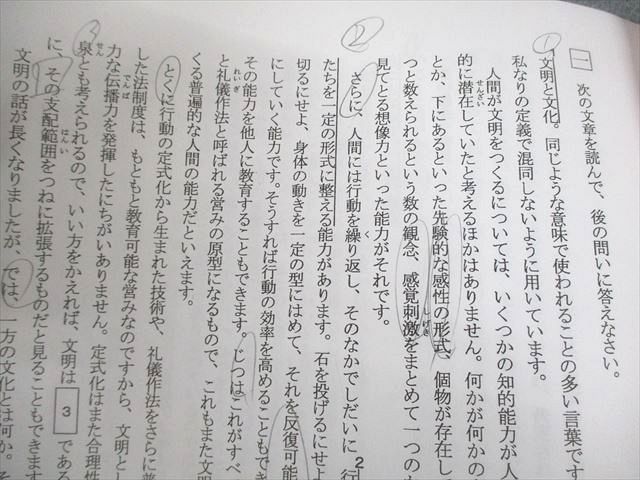 一 次の文章を読んで、後の問いに答えなさい。
① 文明と文化。同じような意味で使われることの多い言葉です
私なりの定義で混同しないように用いています。
人間が文明をつくるについては、いくつかの知的能力が人
的に潜在していたと考えるほかはありません。何かが何かの
とか、下にあるといった先験的な感性の形式、個物が存在し
つと数えられるという数の観念、感覚刺激をまとめて一つの
見てとる想像力といった能力がそれです。
② さらに、人間には行動を繰り返し、そのなかでしだいに2行
たちを一定の形式に整える能力があります。石を投げるにせよ
切るにせよ、身体の動きを一定の型にはめて、それを反復可能
にしていく能力です。そうすれば行動の効率を高めることもでき
その能力を他人に教育することもできます。じつはこれがすべ
と礼儀作法と呼ばれる営みの原型になるもので、これもまた文明
くる普遍的な人間の能力だといえます。
とくに行動の定式化から生まれた技術や、礼儀作法をさらに
した法制度は、もともと教育可能な営みなのですから、文明とし
③ 力な伝播力を発揮したにちがいありません。定式化はまた合理性
泉とも考えられるので、いい方をかえれば、文明は 3 であ
に、その支配範囲をつねに拡張するものだと見ることもできます
文明の話が長くなりましたが、では、一方の文化とは何か。そ